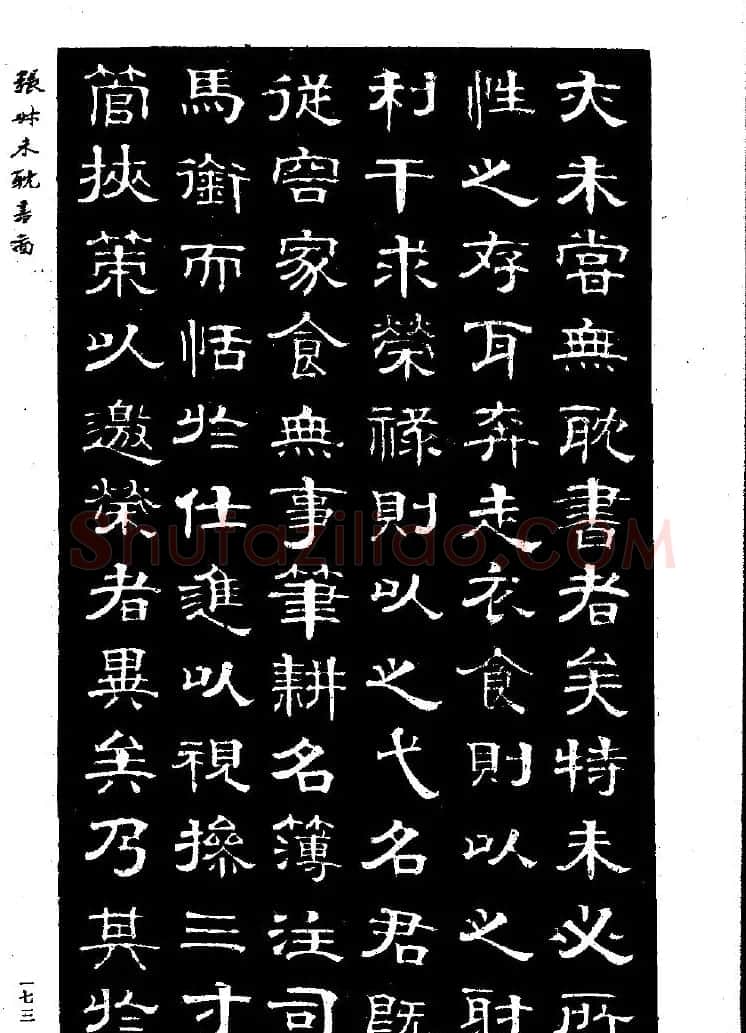 夫未嘗無耽書者矣特未必所
性之存耳奔走衣食則以之財
利干求榮祿則以之弋名君既
從容家食無事筆耕名簿注司
馬銜而恬於仕進以視操三才
管挾策以邀榮者異矣乃其於
張叔未耽書圖
一七三
Shufaziliao.COM